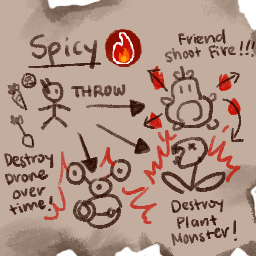 Spicy
Friend
shoot Fire!!!
THROW
Destroy
Drone
over
time!
Destroy
Plant
Monster!